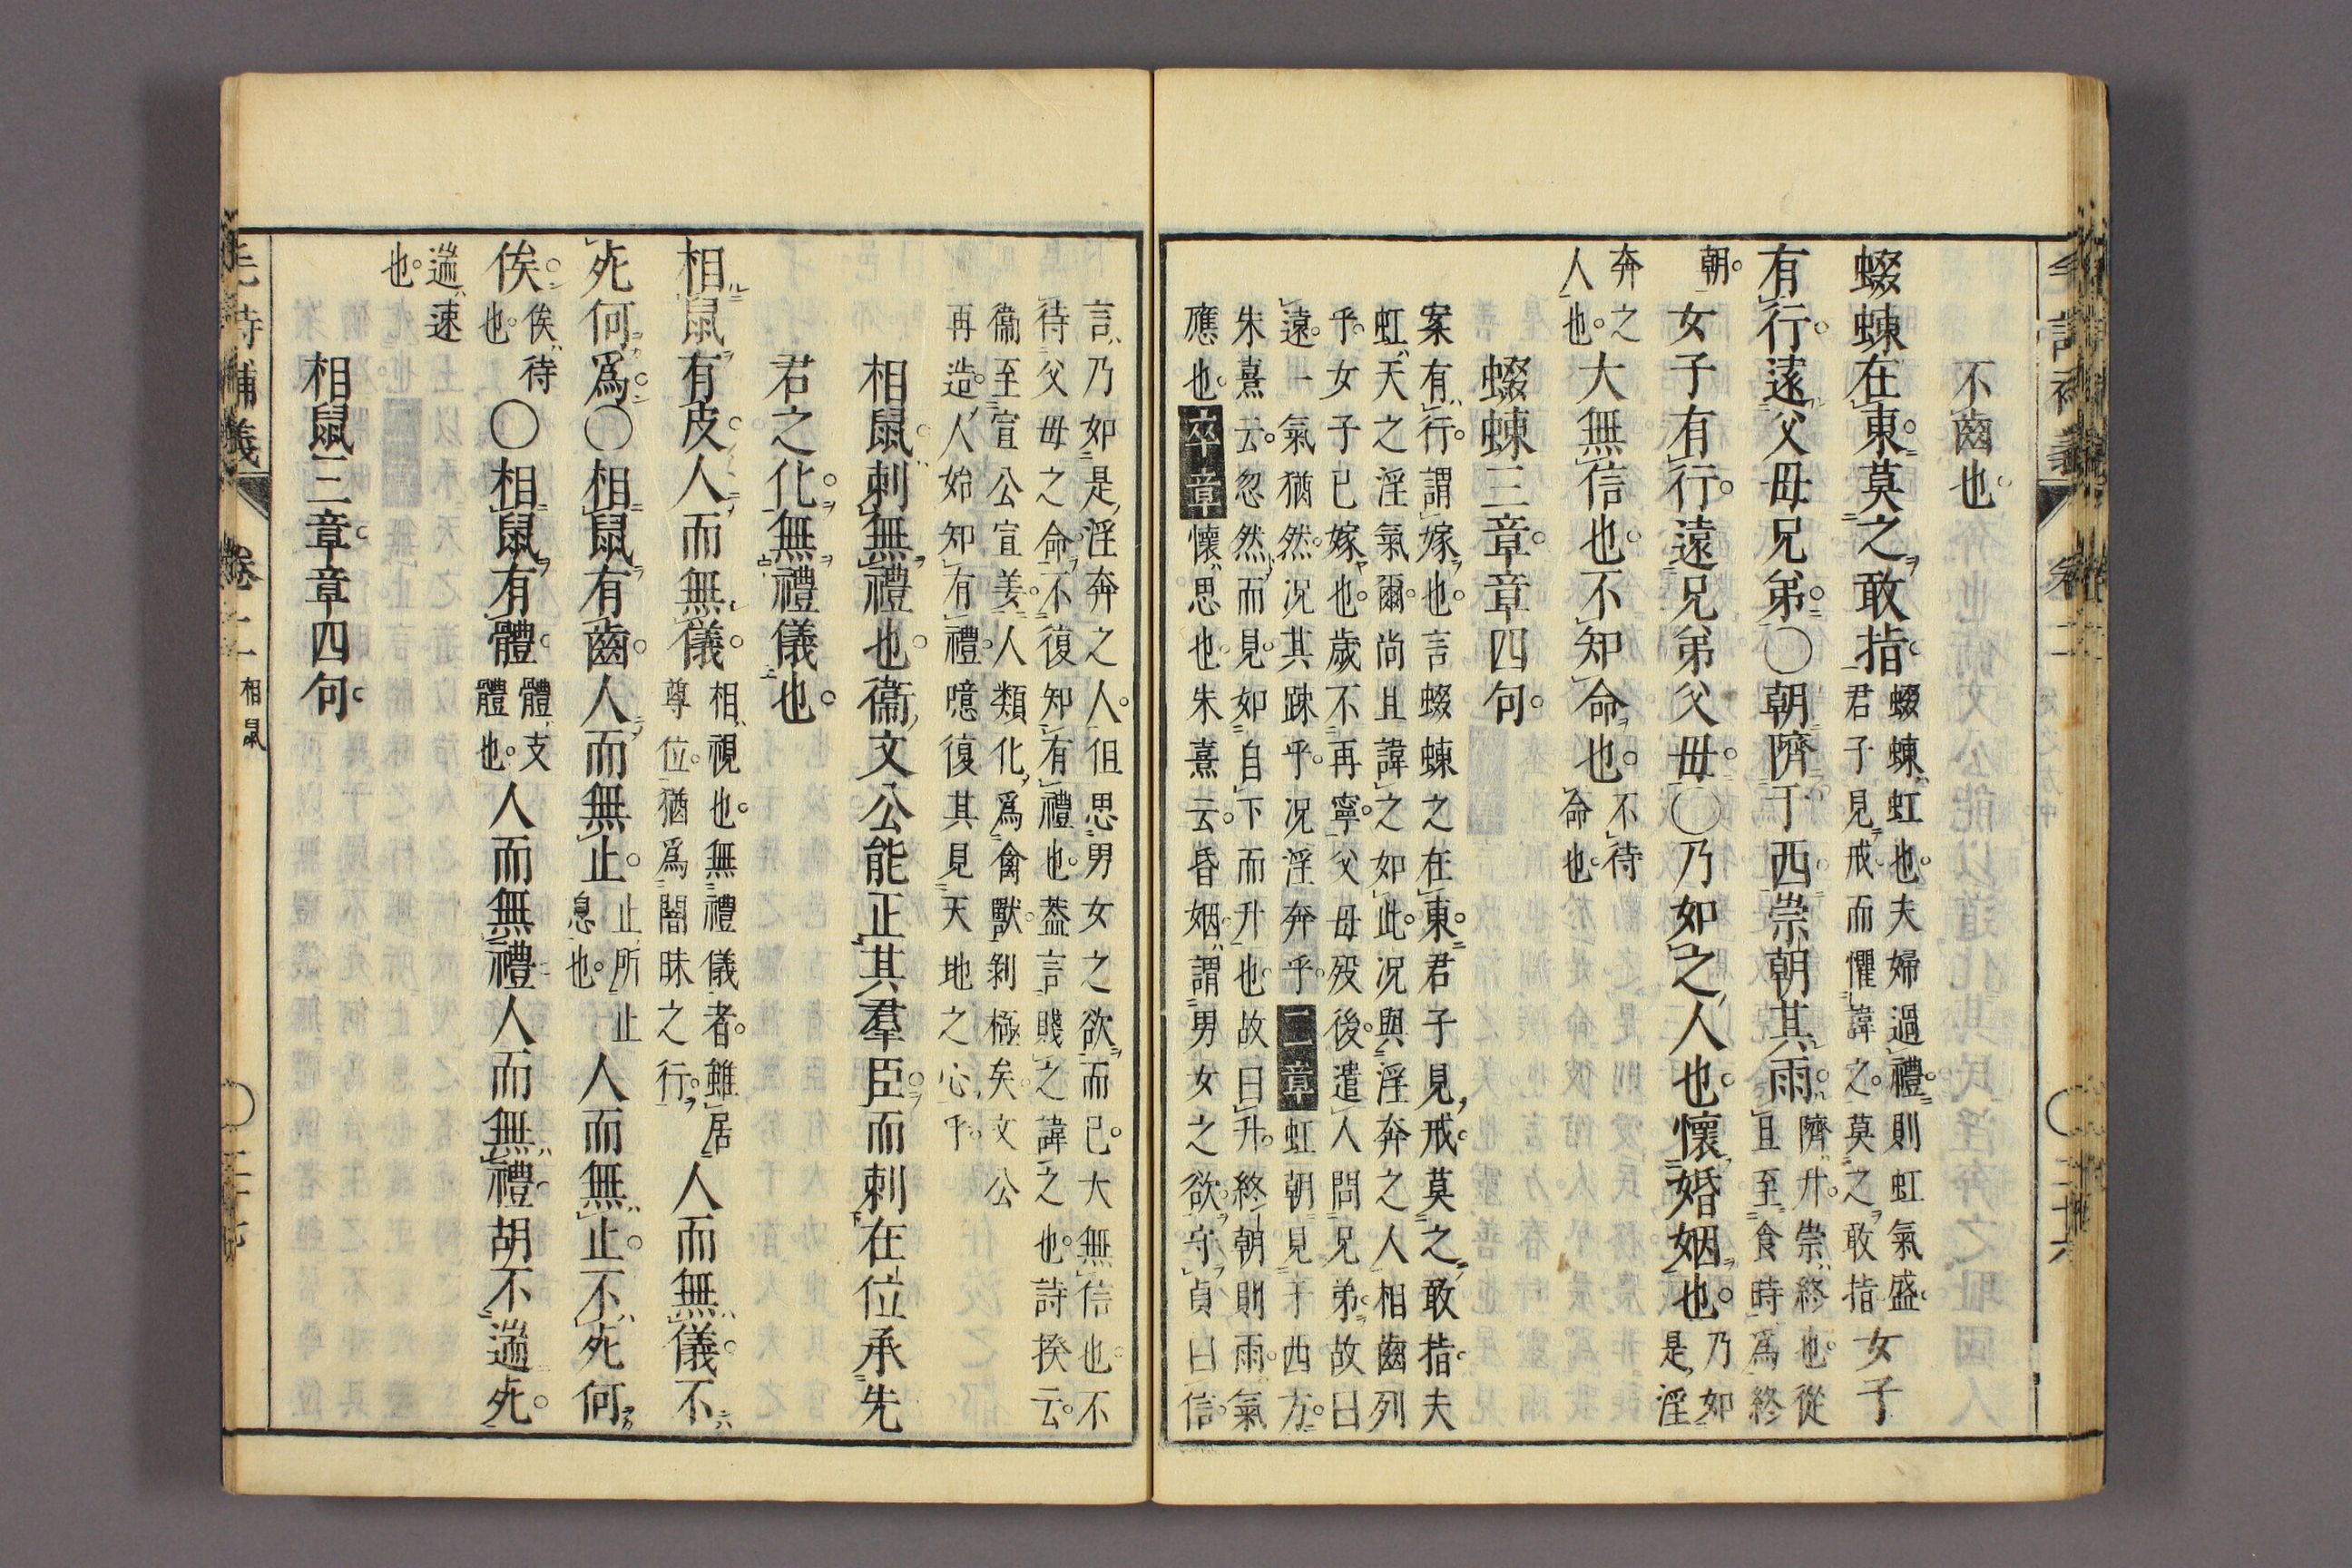 不齒也。
蝃蝀在東。莫之敢指。蝃蝀虹也。夫婦過禮。則虹氣盛。君子見戒而懼諱之。莫之敢指女子
有行。遠父母兄弟。○朝隮于西崇朝其雨。隮升。崇終也。從旦至食時爲終
朝。女子有行。遠兄弟父母。○乃如之人也。懷婚姻也。乃如是淫
奔之人也。大無信也。不知命也。不待命也。
蝃蝀三章。章四句。
案有行。謂嫁也。言蝃蝀之在東。君子見戒。莫之敢指。夫
虹天之淫氣爾。尚且諱之如此。况與淫奔之人相齒列
乎。女子已嫁也。歲不再寧。父母歿後。遣人問兄弟。故曰
遠。一氣猶然。况其踈乎。况淫奔乎。二章虹朝見于西方。
朱熹云。忽然而見。如自下而升也。故曰升。終朝則雨。氣
應也。卒章懷思也。朱熹云。昏姻謂男女之欲。守貞曰信。
言乃如是淫奔之人。但思男女之欲而已。大無信也。不
待父母之命。不復知有禮也。葢言賤之諱之也。詩揆云。
衞至宣公宣姜。人類化爲禽獸。剝極矣。文公
再造。人始知有禮。噫復其見天地之心乎。
相鼠。刺無禮也。衞文公能正其羣臣。而刺在位承先
君之化。無禮儀也。
相鼠有皮。人而無儀。相視也。無禮儀者。雖居尊位。猶爲闇昧之行。人而無儀。不
死何爲。○相鼠有齒。人而無止。止所止息也。人而無止。不死何
俟。俟待也。○相鼠有體。體支體也。人而無禮人而無禮。胡不遄死。
遄速也。
相鼠三章。章四句。
毛詩補義 卷二 相鼠